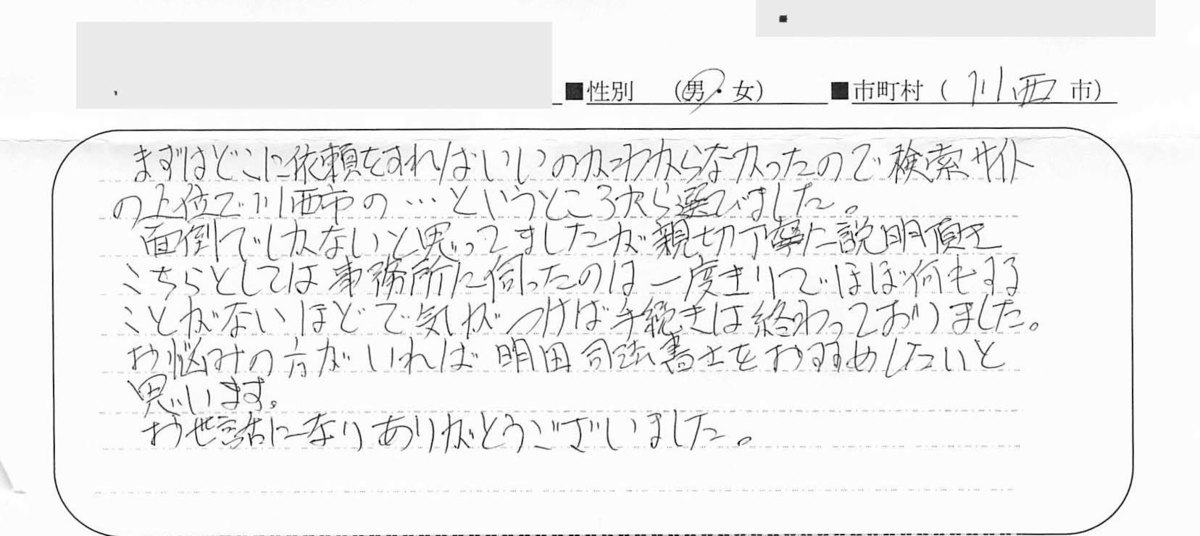 ■性別 （男・女） ■市町村（ 川西 市）
まずはどこに依頼をすればいいのかわからなかったので検索サイト
の上位で川西市の…というところから選びました。
面倒でしかないと思ってましたが親切丁寧に説明頂き
こちらとしては事務所に伺ったのは一度きりでほぼ何もする
ことがないほどで気がつけば手続きは終わっておりました。
お悩みの方がいれば明田司法書士をお勧めしたいと
思います。
お世話になりありがとうございました。